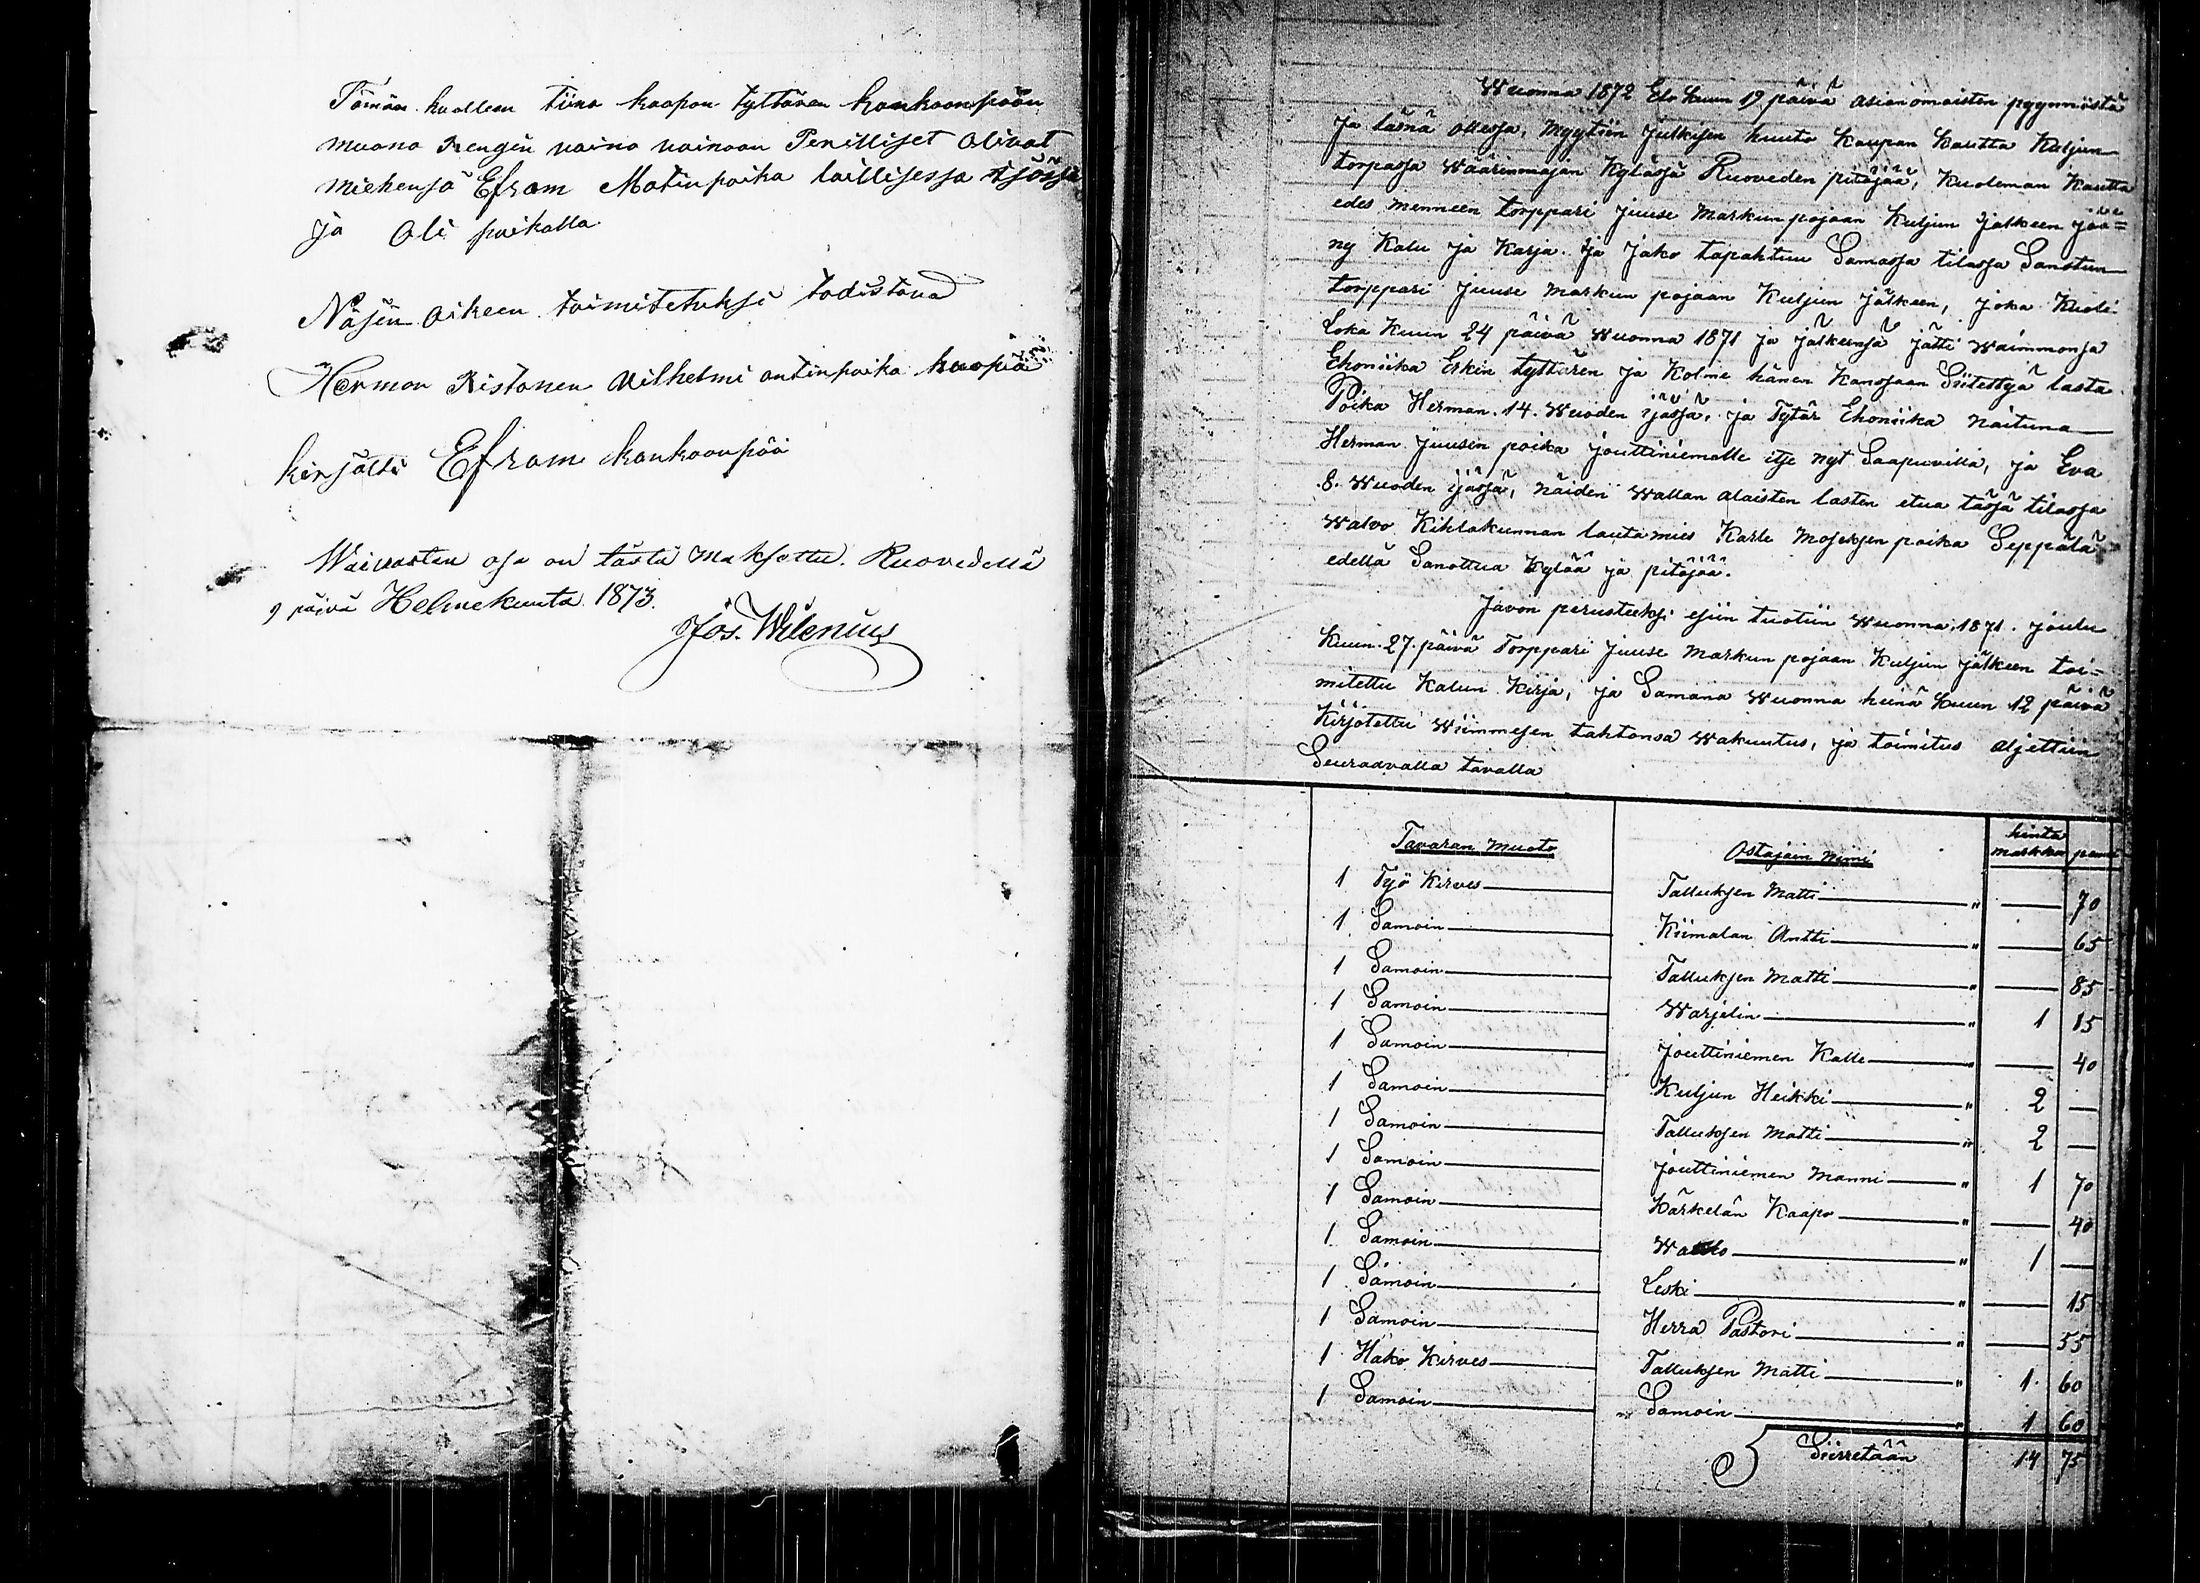 Tämän kuolleen tiina kaapon tyttären kankaanpään
muona Rengin vaino vainaan Perilliset olivat
miehensä Efram Matinpoika laillisessa
ja oli paikalla
Näjin oikeen toimitetuksi todistava
Herman Ristanen Vilhelmi antinpoika
kirjätti Efram kankaanpää
Waivasten osa on tästä maksettu. Ruovedellä
9 päivä Helmekuuta 1873.
Jos. Wilenius
Wuonna 1872 Elo kuun 19 päivä asian omaisten pyynnöstä
ja läsnä ollessa, myytiin julkisen huuto kaupan kautta Kuljun
torpassa Wäärinmajan Kylässä Ruoveden pitäjää, Kuoleman Kautta
edes menneen torppari Juuse Markun pojaan Kuljun jälkeen jää=
ny Kalu ja Karja. ja jako tapahtuu Samassa tilassa Sanotun
torppari Juuse Markun pojaan Kuljun jälkeen, joka Kuoli
Loka Kuun 24 päivä Wuonna 1871 ja jälkensä jätti Waimmonsa
Ehoniika Erkin tyttären ja Kolme hänen Kanssaan Siitettyä lasta
Poika Herman. 14. Wuoden ijässä, ja Tytär Ehoniika naituna
Herman Juusen poika Jouttiniemelle itse nyt Saapuvilla, ja Eva
.8. Wuoden ijässä, näiden Wallan alaisten lasten etua tässä tilassa
Walvo Kihlakunnan lautamies Karle Mojeksen poika Seppälä
edellä Sanottua Kylää ja pitäjää.
Javon perusteeksi esiin tuotiin Wuonna. 1871. joulu
Kuun. 27. päivä Torppari Juuse Markun pojaan Kuljun jälkeen toi=
mitettu Kalun Kirja, ja Samana Wuonna heinä Kuun 12 päivä
Kirjotettu Wiimmesen tahtonsa Wakuutus, ja toimitus aljettiin
Seuraavalla tavalla
Tavaran muoto Ostajain nimi hinta
markka
1 Työ Kirves Talluksen Matti " 70
1 Samoin Kiimalan Antti " 65
1 Samoin Talluksen Matti " 85
1 Samoin Warjelin " 1 15
1 Samoin Jouttiniemen Kalle " 40
1 Samoin Kuljun Heikki " 2 —
1 Samoin Talluksen Matti " 2 —
1 Samoin Jouttiniemen Manni " 1 70
1 Samoin Kärkelän Kaapo " 40
1 Samoin " 1 —
1 Samoin Leski " 15
1 Samoin Herra Pastori " 55
1 Hako Kirves Talluksen Matti " 1 60
1 Samoin Samoin " 1 60
Siirretään 14 75